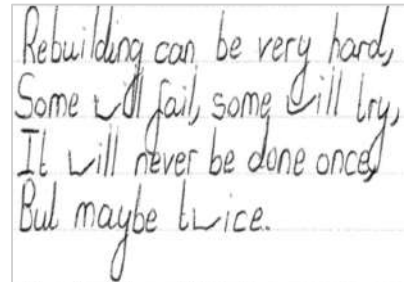 Rebuilding can be very hard,
Some will fail, some will try,
It will never be done once,
But maybe twice.